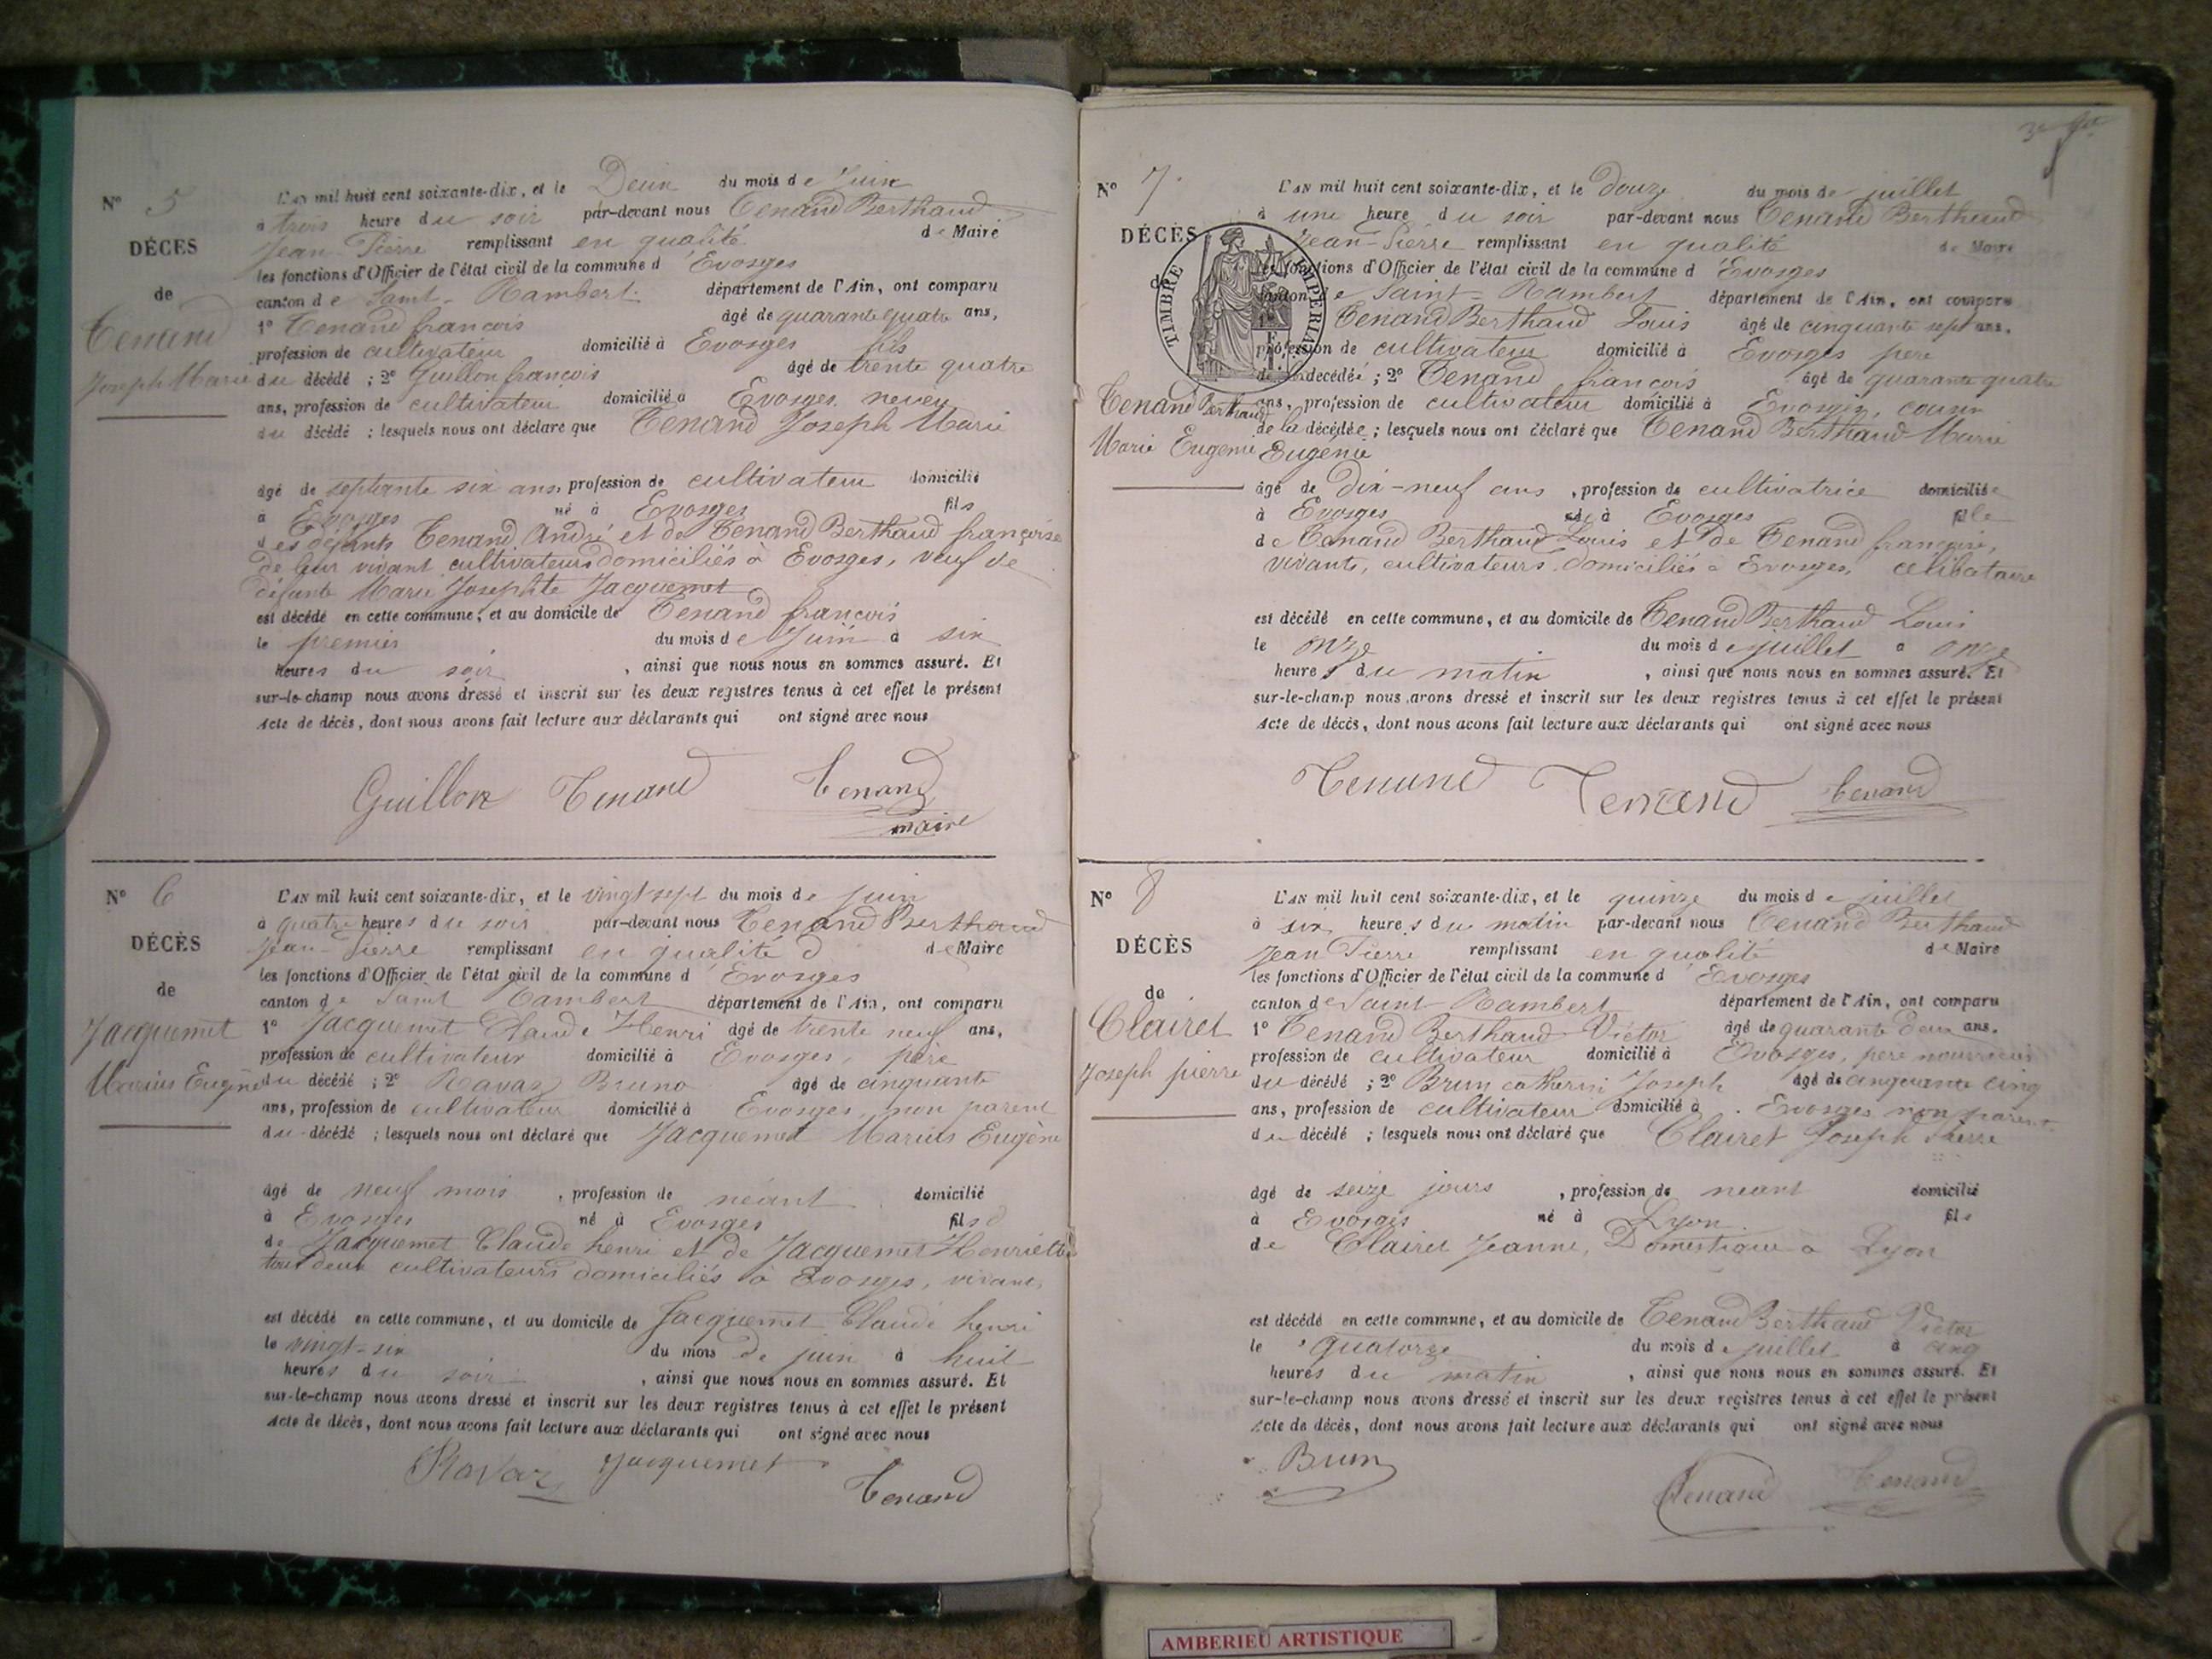 N° 5
DÉCÈS
de
Tenand
Joseph Marie
L'AN mil huit cent soixante-dix, et le Deux du mois de Juin
à trois heure du soir par-devant nous Tenand Berthaud
Jean-Pierre remplissant en qualité de Maire
les fonctions d'Officier de l'état civil de la commune d'Evosges
canton de Saint-Rambert département de l'Ain, ont comparu
1° Tenand françois âgé de quarante quatre ans,
profession de cultivateur domicilié à Evosges fils
du décédé ; 2° Guillon françois âgé de trente quatre
ans, profession de cultivateur domicilié à Evosges, neveu
du décédé ; lesquels nous ont déclaré que Tenand Joseph Marie
âgé de septante six ans, profession de cultivateur domicilié
à Evosges né à Evosges fils
des défunts Tenand André et de Tenand Berthaud françoise
de leur vivant cultivateurs domiciliés à Evosges, veuf de
défunte Marie Josephte Jacquemet
est décédé en cette commune, et au domicile de Tenand françois
le premier du mois de Juin à six
heures du soir, ainsi que nous nous en sommes assuré. Et
sur-le-champ nous avons dressé et inscrit sur les deux registres tenus à cet effet le présent
Acte de décès, dont nous avons fait lecture aux déclarants qui ont signé avec nous
Guillon Tenand Tenand
maire
N° 6
DÉCÈS
de
Jacquemet
Marius Eugène
L'AN mil huit cent soixante-dix, et le vingt-sept du mois de juin
à quatre heures du soir par-devant nous Tenand Berthaud
Jean-Pierre remplissant en qualité d de Maire
les fonctions d'Officier de l'état civil de la commune d'Evosges
canton de Saint Rambert département de l'Ain, ont comparu
1° Jacquemet Claude Henri âgé de trente neuf ans,
profession de cultivateur domicilié à Evosges, père
du décédé ; 2° Ravaz Bruno âgé de cinquante
ans, profession de cultivateur domicilié à Evosges, non parent
du décédé ; lesquels nous ont déclaré que Jacquemet Marius Eugène
âgé de neuf mois, profession de néant domicilié
à Evosges né à Evosges fils d
de Jacquemet Claude henri et de Jacquemet Henriette
tout deux cultivateurs domiciliés à Evosges, vivant
est décédé en cette commune, et au domicile de Jacquemet Claude henri
le vingt-six du mois de juin à huit
heures du soir, ainsi que nous nous en sommes assuré. Et
sur-le-champ nous avons dressé et inscrit sur les deux registres tenus à cet effet le présent
Acte de décès, dont nous avons fait lecture aux déclarants qui ont signé avec nous
Ravaz Jacquemet
Tenand
N° 7.
DÉCÈS
de
TIMBRE IMPÉRIAL
Tenand Berthaud
Marie Eugenie
L'AN mil huit cent soixante-dix, et le douze du mois de juillet
à une heure du soir par-devant nous Tenand Berthaud
Jean-Pierre remplissant en qualité de Maire
les fonctions d'Officier de l'état civil de la commune d'Evosges
canton de Saint-Rambert département de l'Ain, ont comparu
1° Tenand Berthaud Louis âgé de cinquante sept ans,
profession de cultivateur domicilié à Evosges père
de la décédée ; 2° Tenand françois âgé de quarante quatre
ans, profession de cultivateur domicilié à Evosges, cousin
de la décédée ; lesquels nous ont déclaré que Tenand Berthaud Marie
Eugénie
âgé de dix-neuf ans, profession de cultivatrice domiciliée
à Evosges née à Evosges fille
de Tenand Berthaud Louis et de Tenand françoise,
vivants, cultivateurs domiciliés à Evosges, célibataire
est décédé en cette commune, et au domicile de Tenand Berthaud Louis
le onze du mois de juillet à onze
heures du matin, ainsi que nous nous en sommes assuré. Et
sur-le-champ nous avons dressé et inscrit sur les deux registres tenus à cet effet le présent
Acte de décès, dont nous avons fait lecture aux déclarants qui ont signé avec nous
Tenand Tenand Tenand
N° 8
DÉCÈS
de
Clairet
Joseph pierre
L'AN mil huit cent soixante-dix, et le quinze du mois de juillet
à six heures du matin par-devant nous Tenand Berthaud
Jean Pierre remplissant en qualité de Maire
les fonctions d'Officier de l'état civil de la commune d'Evosges
canton de Saint-Rambert département de l'Ain, ont comparu
1° Tenand Berthaud Victor âgé de quarante deux ans,
profession de cultivateur domicilié à Evosges, père nourricier
du décédé ; 2° Brun catherin Joseph âgé de cinquante cinq
ans, profession de cultivateur domicilié à Evosges non parent
du décédé ; lesquels nous ont déclaré que Clairet Joseph Pierre
âgé de seize jours, profession de néant domicilié
à Evosges né à Lyon fils
de Clairet Jeanne, Domestique à Lyon
est décédé en cette commune, et au domicile de Tenand Berthaud Victor
le quatorze du mois de juillet à cinq
heures du matin, ainsi que nous nous en sommes assuré. Et
sur-le-champ nous avons dressé et inscrit sur les deux registres tenus à cet effet le présent
Acte de décès, dont nous avons fait lecture aux déclarants qui ont signé avec nous
Brun
Tenand Tenand
AMBERIEU ARTISTIQUE